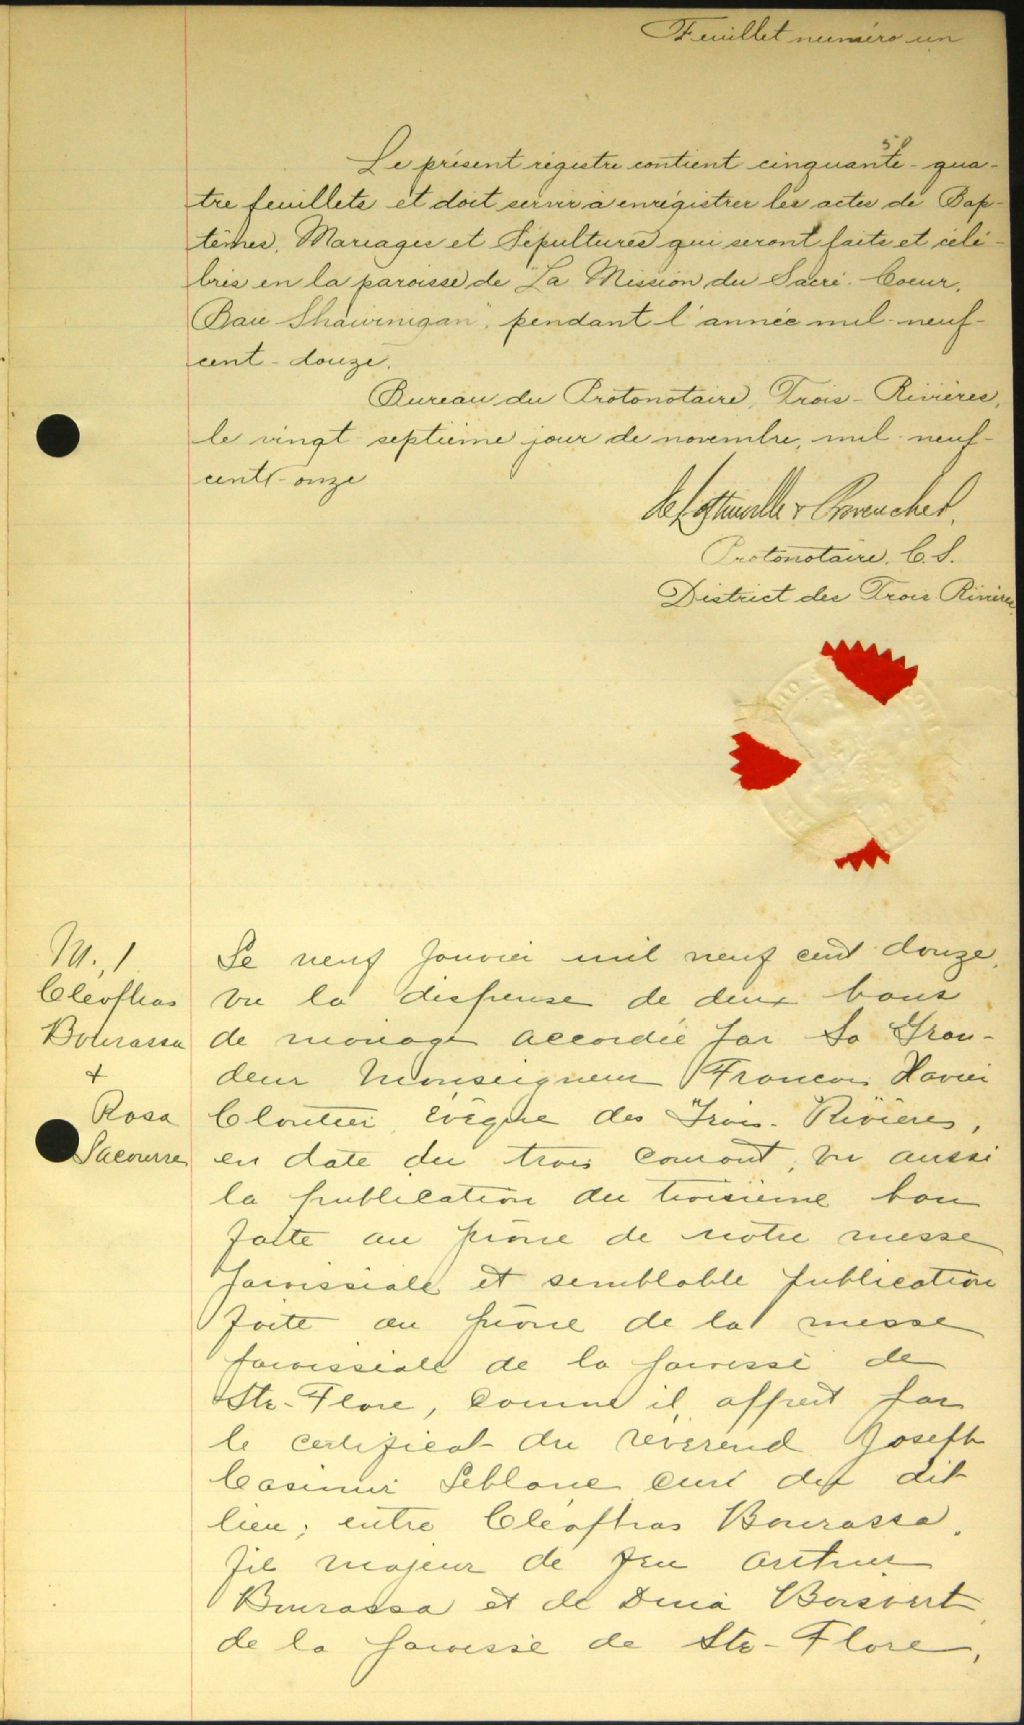 Feuillet numéro un
Le présent régistre contient cinquante-qua-
tre feuillets et doit servir à enrégistrer les actes de Bap-
têmes, Mariages et Sépultures qui seront faits et célé-
brés en la paroisse de "La Mission du Sacré-Coeur,
Baie Shawinigan", pendant l'année mil-neuf-
cent-douze.
Bureau du Protonotaire, Trois-Rivières,
le vingt-septième jour de novembre, mil-neuf-
cent-onze
& Provencher,
Protonotaire. C.S.
District des Trois Rivières.
M. 1
Cléophas
Bourassa
+
Rosa
Lacourse
Le neuf Janvier mil neuf cent douze,
vu la dispense de deux bans
de mariage accordée par Sa Gran-
deur Monseigneur François Xavier
Cloutier, évêque des Trois-Rivières,
en date du trois courant, vu aussi
la publication du troisième ban
faite au prône de notre messe
paroissiale et semblable publication
faite au prône de la messe
paroissiale de la paroisse de
Ste-Flore, comme il appert par
le certificat du révérend Joseph
Casimir Leblanc curé du dit
lieu; entre Cléophas Bourassa,
fils majeur de feu Arthur
Bourassa et de Dina Boisvert
de la paroisse de Ste-Flore,